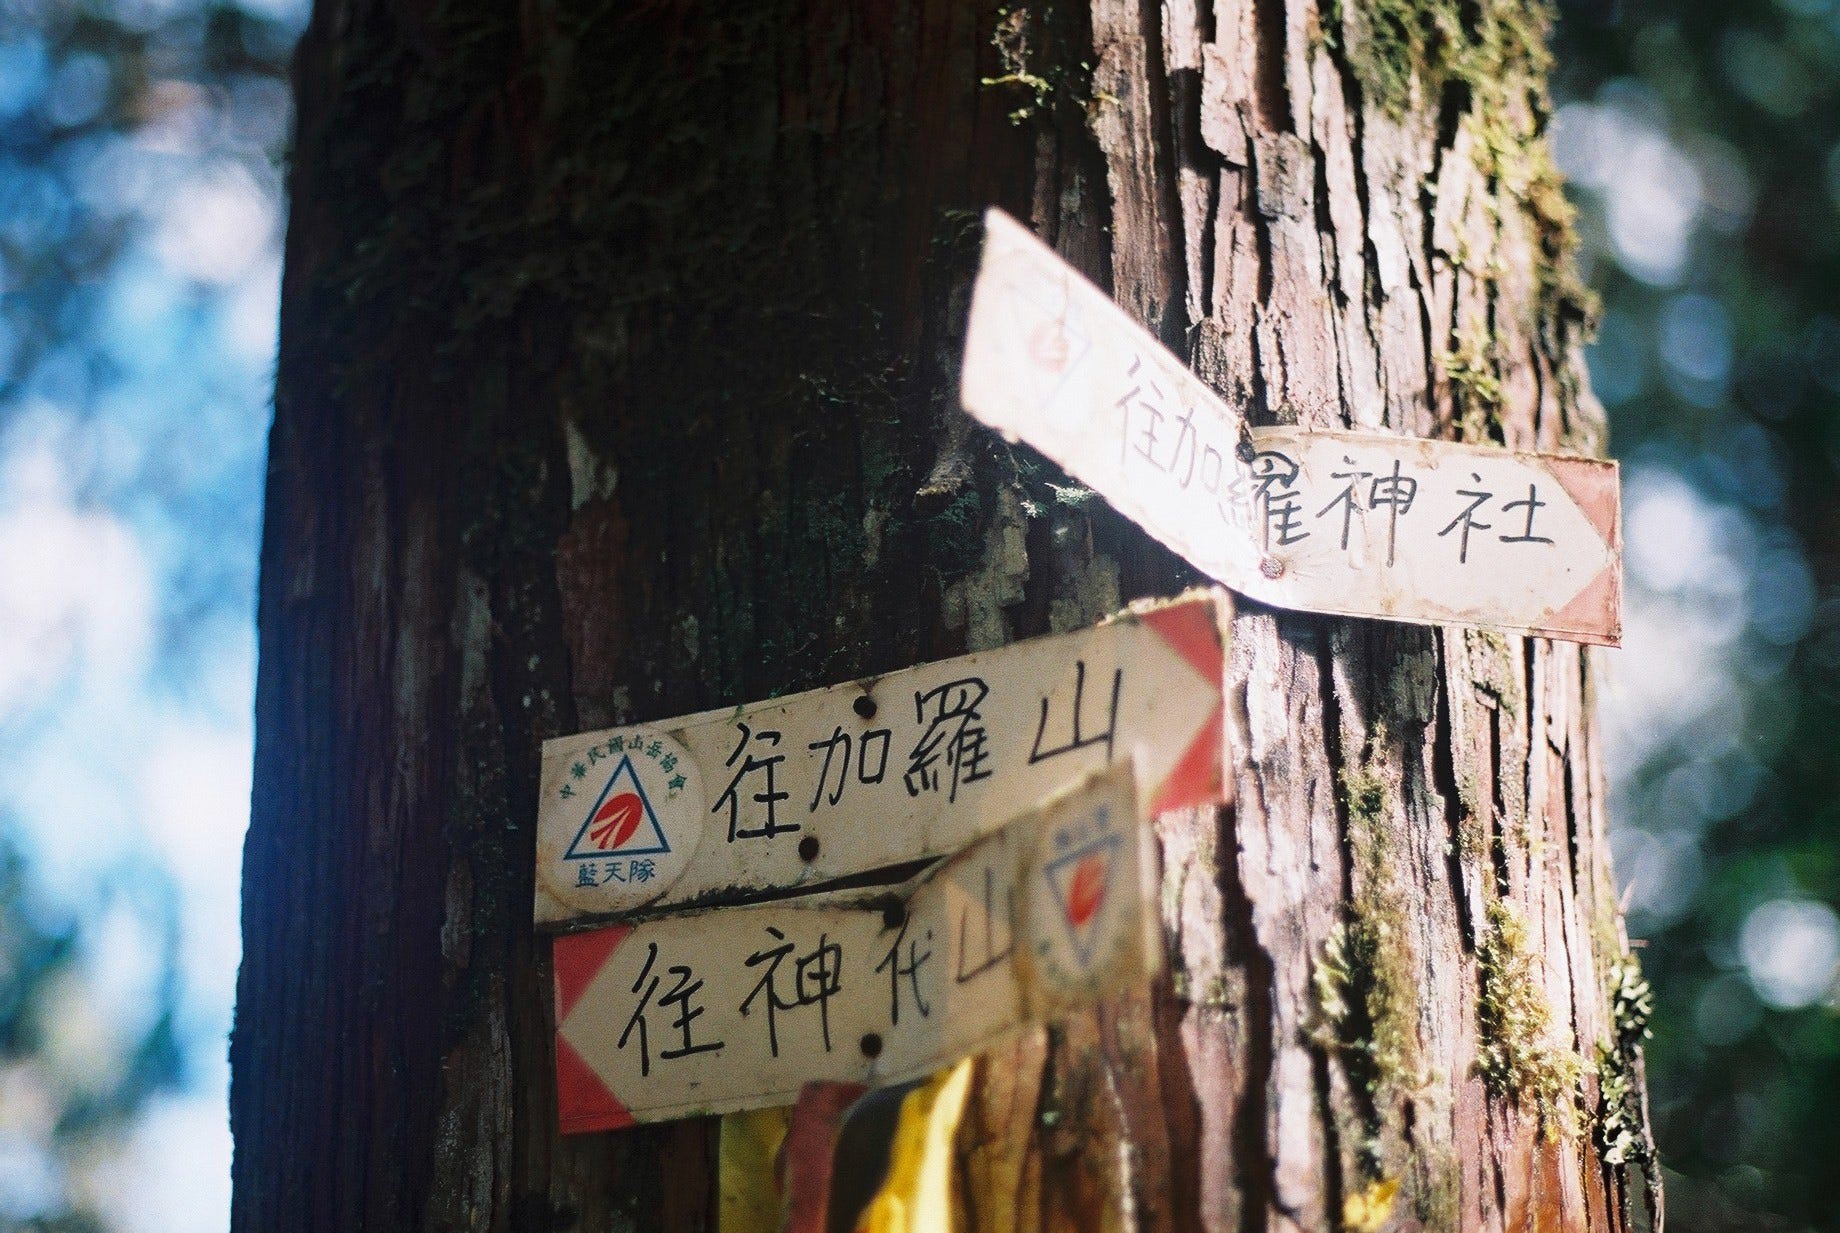 往加羅神社
往加羅山
中華民國山岳協會
藍天隊
往神代山